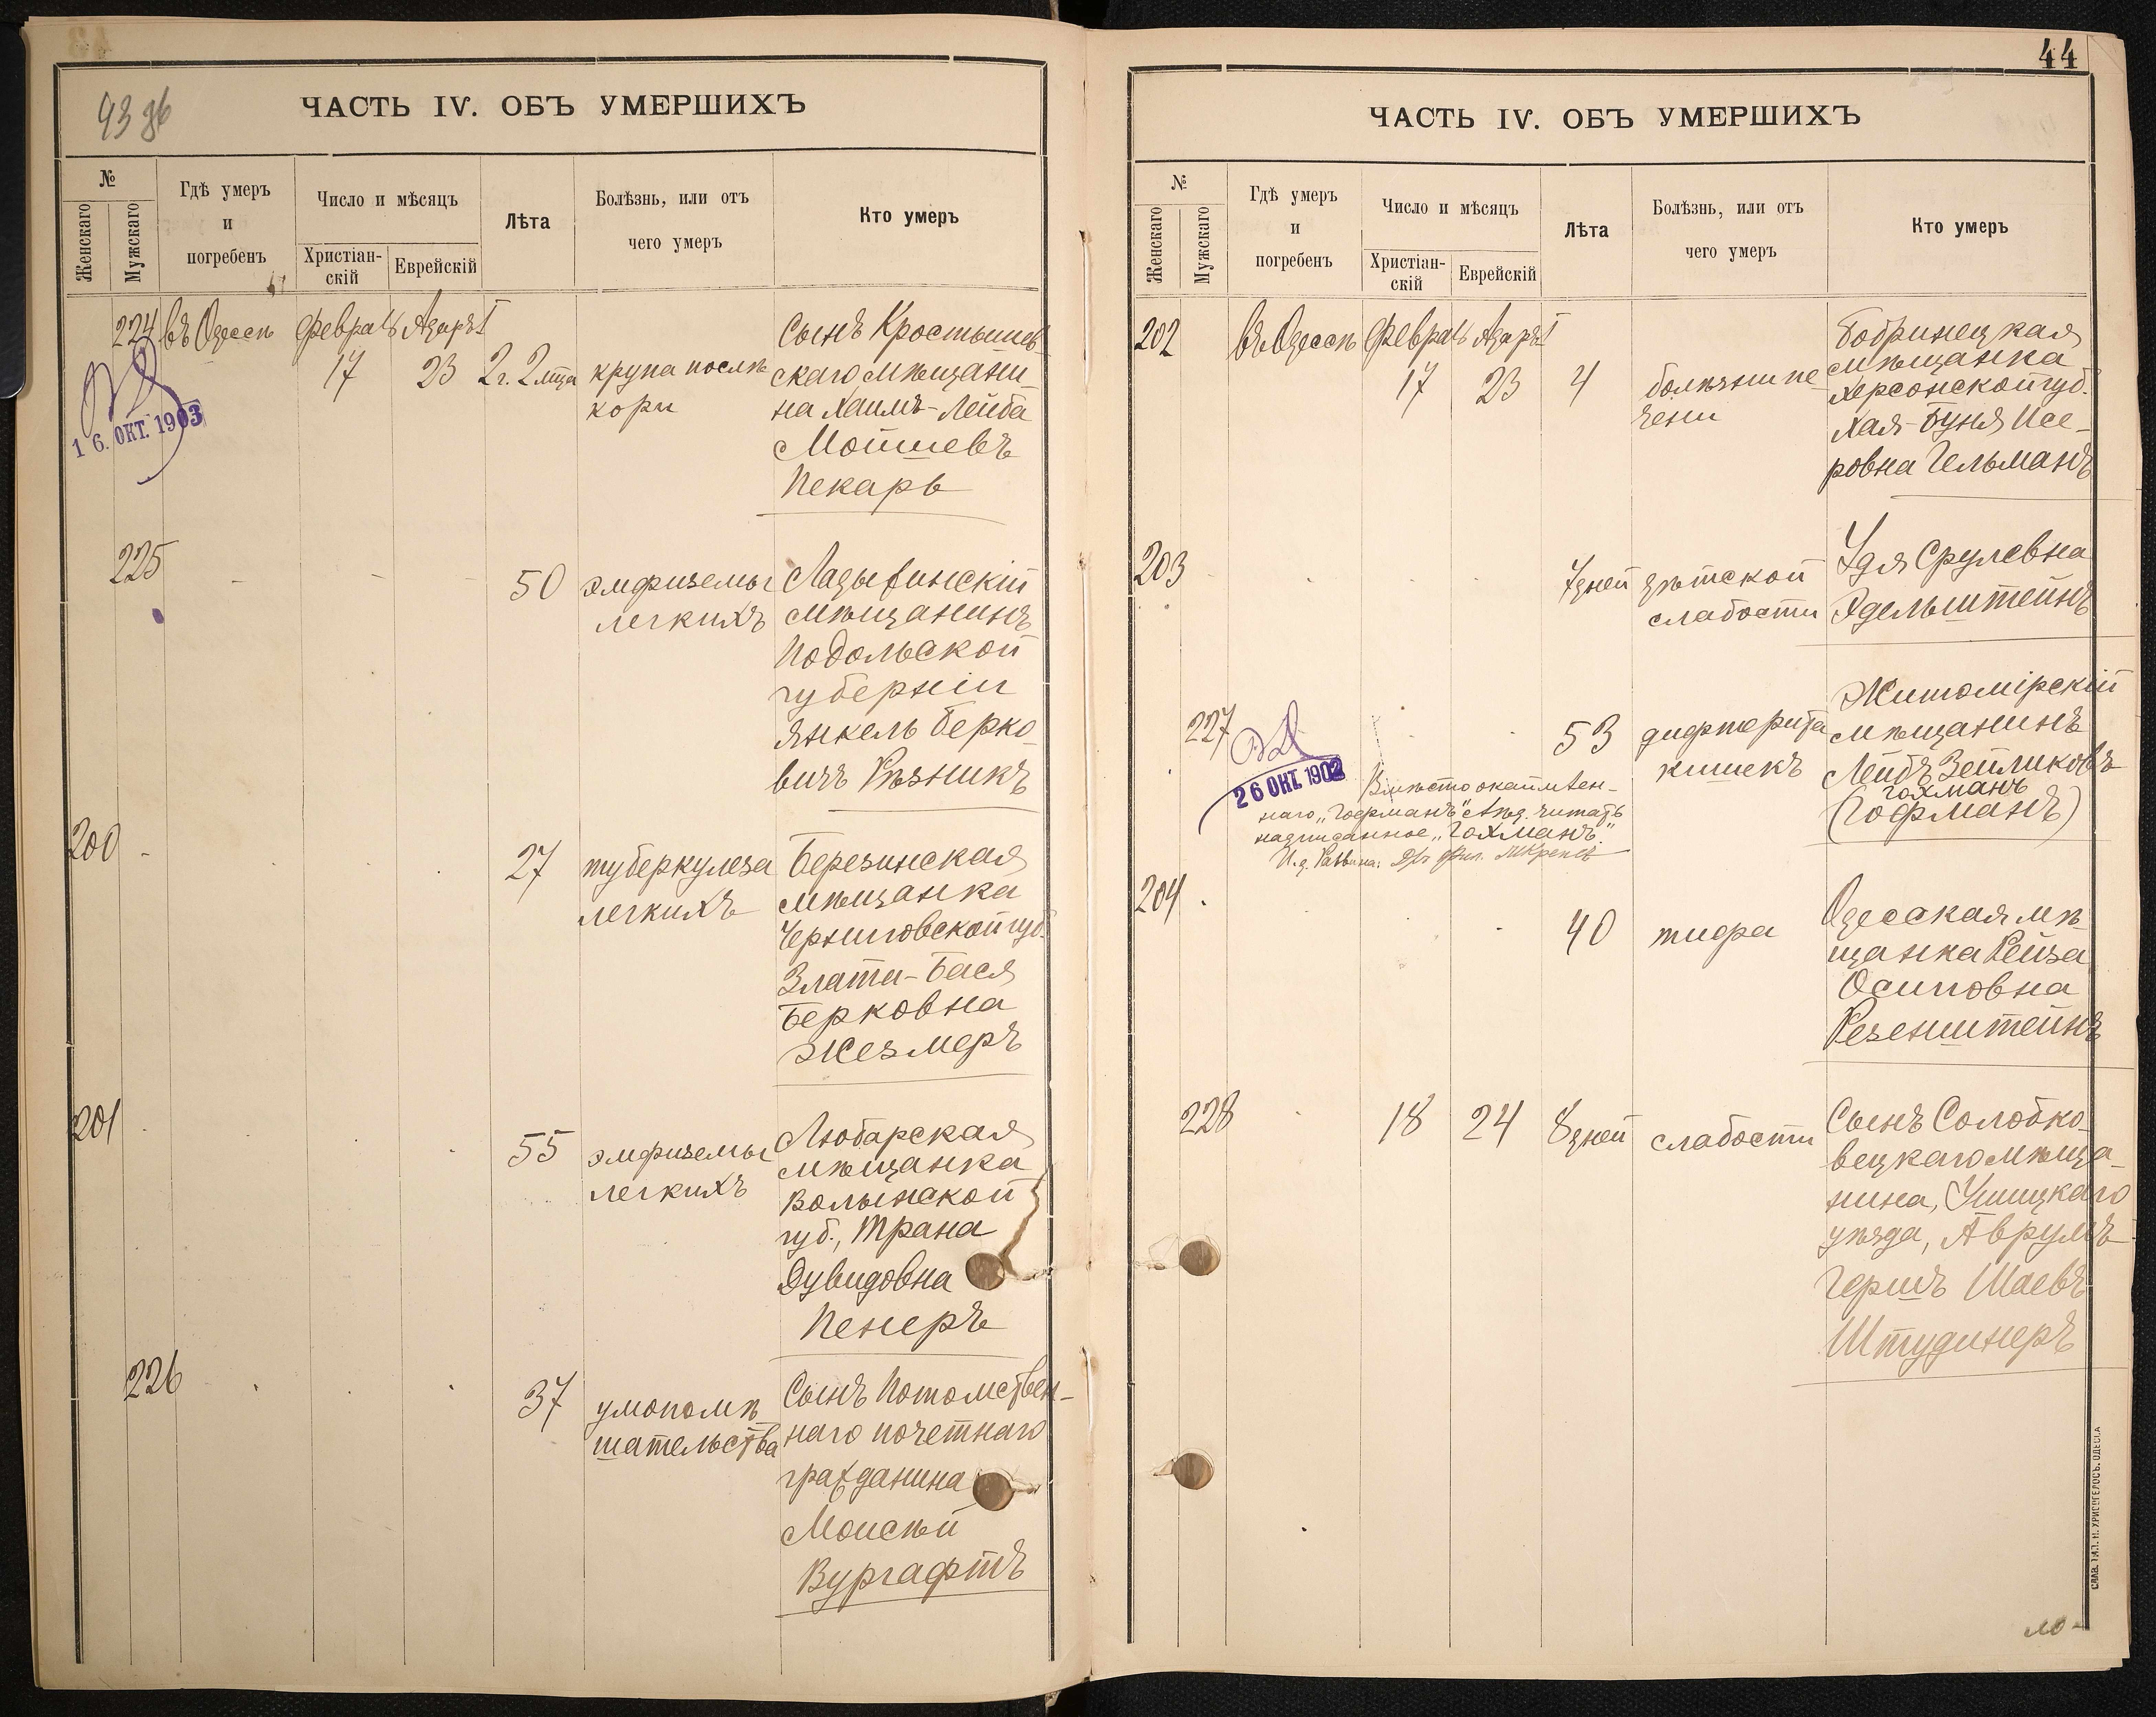 93 об
ЧАСТЬ IV. ОБЪ УМЕРШИХЪ
№
Женскаго
Мужскаго
Гдѣ умеръ
и
погребенъ
Число и мѣсяцъ
Христіан-
скій
Еврейскій
Лѣта
Болѣзнь, или отъ
чего умеръ
Кто умеръ
224 въ Одессѣ Февраль Адаръ I
17 23 2 г. 2 мца
крупа послѣ
кори
Сынъ Кростышев-
скаго мѣщани-
на Хаимъ-Лейба
Мошшевъ
Пекарь
16. ОКТ. 1903
225
50
эмфиземы
легкихъ
Ладыжинскій
мѣщанинъ
Подольской
губерніи
Янкель Берко-
вичъ Рѣзникъ
200
27
туберкулеза
легкихъ
Березинская
мѣщанка
Черниговской губ.
Злати-Бася
Берковна
Жезмеръ
201
55
эмфиземы
легкихъ
Любарская
мѣщанка
Волынской
губ., Трана
Дувидовна
Пенеръ
226
37
умопомѣ-
шательства
Сынъ Потомствен-
наго почетнаго
гражданина
Моисѣй
Вургафтъ
44
ЧАСТЬ IV. ОБЪ УМЕРШИХЪ
№
Женскаго
Мужскаго
Гдѣ умеръ
и
погребенъ
Число и мѣсяцъ
Христіан-
скій
Еврейскій
Лѣта
Болѣзнь, или отъ
чего умеръ
Кто умеръ
202 въ Одессѣ Февраль Адаръ I
17 23 4
болѣзни пе-
чени
Бобринецкая
мѣщанка
Херсонской губ.
Хая-Буня Исе-
ровна Гельманъ
203
7 дней
дѣтской
слабости
Удя Срулевна
Эдельштейнъ
227
53
дифтерита
кишекъ
Житомірскій
мѣщанинъ
Лейбъ Зейликовъ
Гохманъ
(Гофманъ)
26 ОКТ. 1902
Вмѣсто окаймлен-
наго „Гофманъ" слѣд. читать
надписанное „Гохманъ"
И. д. Раввина:
204
40
тифа
Одесская мѣ-
щанка Рейза
Осиповна
Резенштейнъ
228
18 24 8 дней
слабости
Сынъ Солобко-
вецкаго мѣща-
нина, Ушицкаго
уѣзда, Аврумъ-
Гершъ Шаевъ
Штудинеръ
СЛАВ. ТИП. Н. ХРИСОГЕЛОСЪ. ОДЕССА